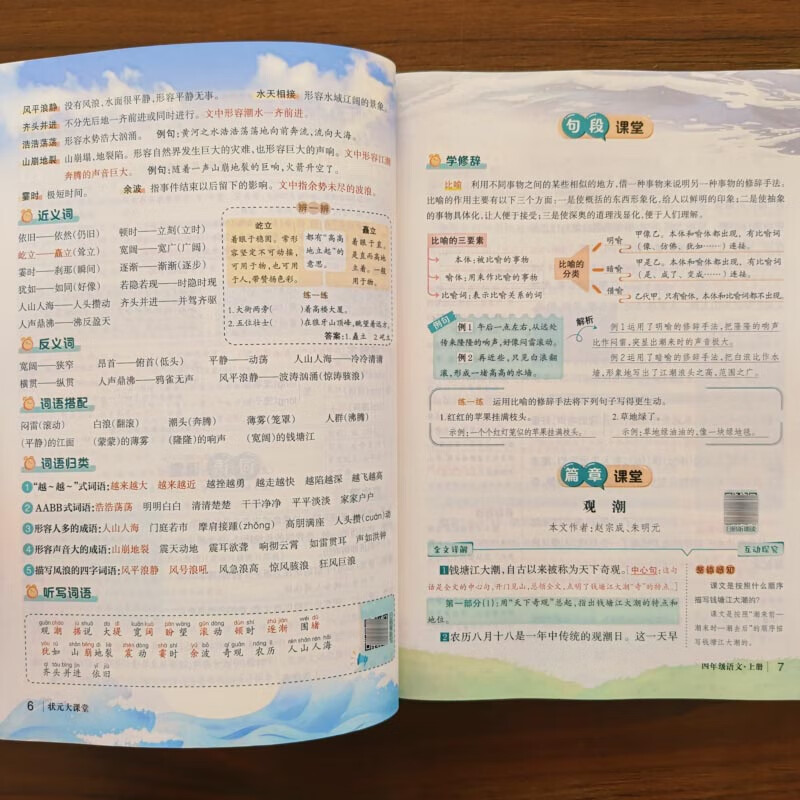 风平浪静 没有风浪,水面很平静,形容平静无事。 水天相接 形容水域辽阔的景象。
齐头并进 不分先后地一齐前进或同时进行。文中形容潮水一齐前进。
浩浩荡荡 形容水势大汹涌。 例句:黄河之水浩浩荡荡地向前奔流,流向大海。
山崩地裂 山崩塌,地裂陷。形容自然界发生巨大的灾难,也形容巨大的声响。文中形容江潮
奔腾的声音巨大。 例句:随着一声山崩地裂的巨响,火箭升空了。
霎时 极短时间。 余波 指事件结束以后留下的影响。文中指余势未尽的波浪。
近义词
依旧——依然(仍旧) 顿时——立刻(立时)
屹立——矗立(耸立) 宽阔——宽广(广阔)
霎时——刹那(瞬间) 逐渐——渐渐(逐步)
犹如——如同(好像) 若隐若现——时隐时现
人山人海——人头攒动 齐头并进——并驾齐驱
人声鼎沸——沸反盈天
辨一辨
屹立
着眼于稳固。常形
容坚定不可动摇,
可用于物,也可用
于人,带赞扬色彩。
都有“高高
地立起”的
意思。
矗立
着眼于直,
是直而高地
立着。一般
用于物。
练一练
1.大街两旁( )着高楼大厦。
2.五位壮士( )在狼牙山顶峰,眺望着远方。
答案:1.矗立 2.屹立
反义词
宽阔——狭窄 昂首——俯首(低头) 平静——动荡 人山人海——冷冷清清
横贯——纵贯 人声鼎沸——鸦雀无声 风平浪静——波涛汹涌(惊涛骇浪)
词语搭配
闷雷(滚动) 白浪(翻滚) 潮头(奔腾) 薄雾(笼罩) 人群(沸腾)
(平静)的江面 (蒙蒙)的薄雾 (隆隆)的响声 (宽阔)的钱塘江
词语归类
1 “越~越~”式词语:越来越大 越来越近 越挫越勇 越走越快 越陷越深 越飞越高
2 AABB式词语:浩浩荡荡 明明白白 清清楚楚 干干净净 平平淡淡 家家户户
3 形容人多的成语:人山人海 门庭若市 摩肩接踵(zhǒng) 高朋满座 人头攒(cuán)动
4 形容声音大的成语:山崩地裂 震天动地 震耳欲聋 响彻云霄 如雷贯耳 声如洪钟
5 描写风浪的四字词语:风平浪静 风号浪吼 风急浪高 惊风骇浪 狂风巨浪
听写词语
观潮 据说 大堤 宽阔 盼望 滚动 顿时 逐渐 围堵
犹如 山崩地裂 震动 霎时 余波 奇观 农历 人山人海
齐头并进 依旧
6 状元大课堂
句段 课堂
学修辞
比喻 利用不同事物之间的某些相似的地方,借一种事物来说明另一种事物的修辞手法。
比喻的作用主要有以下三个方面:一是使概括的东西形象化,给人以鲜明的印象;二是使抽象
的事物具体化,让人便于接受;三是使深奥的道理浅显化,便于人们理解。
比喻的三要素
本体:被比喻的事物
喻体:用来作比喻的事物
比喻词:表示比喻关系的词
比喻的
分类
明喻 甲像乙。本体和喻体都出现,有比喻词
(像、仿佛、犹如……)连接。
暗喻 甲是乙。本体和喻体都出现,有比喻词
(是、成了、变成……)连接。
借喻 乙代甲。只有喻体,本体和比喻词都不出现。
例句
例1 午后一点左右,从远处
传来隆隆的响声,好像闷雷滚动。
例2 再近些,只见白浪翻
滚,形成一堵高高的水墙。
解析
例1运用了明喻的修辞手法,把隆隆的响声
比作闷雷,突显出潮来时的声音很大。
例2运用了暗喻的修辞手法,把白浪比作水
墙,形象地写出了江潮浪头之高,范围之广。
练一练 运用比喻的修辞手法将下列句子写得更生动。
1.红红的苹果挂满枝头。 2.草地绿了。
示例:一个个红灯笼似的苹果挂满枝头。 示例:草地绿油油的,像一块绿地毯。
篇章 课堂
观 潮
本文作者:赵宗成、朱明元
全文详解 互动探究
1 钱塘江大潮,自古以来被称为天下奇观。[中心句:这句
话是全文的中心句,开门见山,总领全文,点明了钱塘江大潮“奇”的特点。]
第一部分(1):用“天下奇观”总起,指出钱塘江大潮的特点和
地位。
2 农历八月十八是一年中传统的观潮日。这一天早
整体感知
课文是按照什么顺序
描写钱塘江大潮的?
课文是按照“潮来前—
潮来时—潮去后”的顺序描
写钱塘江大潮的。
四年级语文·上册 7